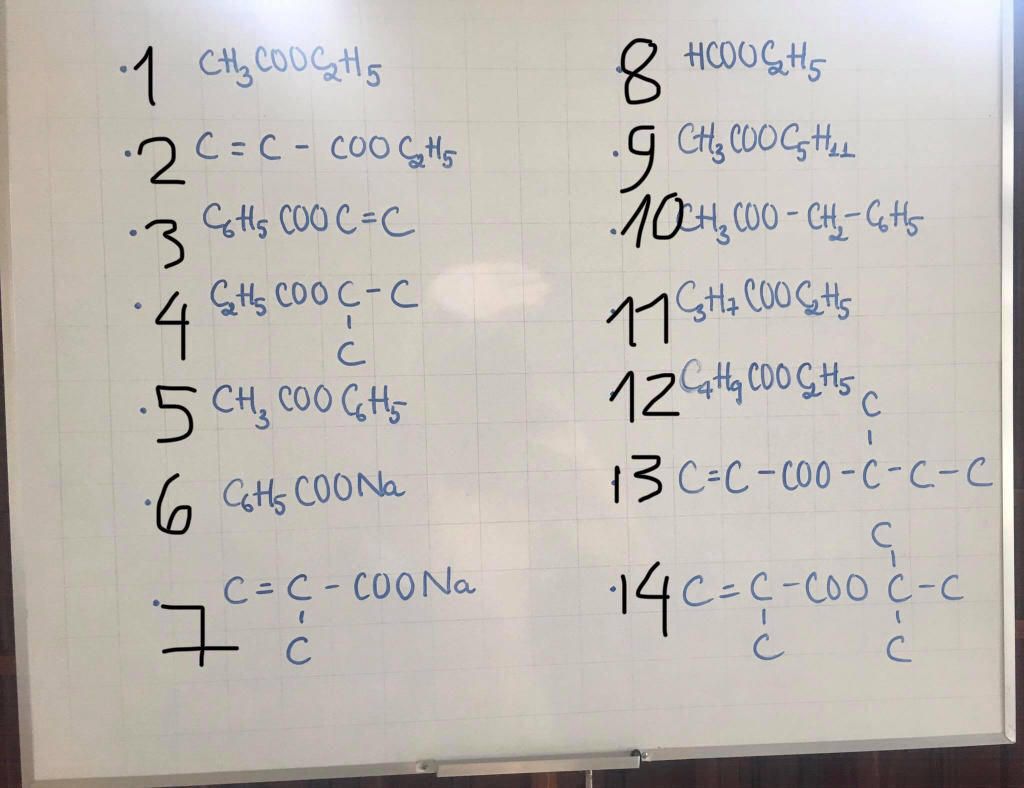 ·1 CH₃COOC₂H₅
·2 C = C - COOC₂H₅
·3 C₆H₅COOC=C
·4 C₂H₅COOC-C
C
·5 CH₃COOC₆H₅
·6 C₆H₅COONa
·7 C = C - COONa
C
·8 HCOOC₂H₅
·9 CH₃COOC₅H₁₁
·10 CH₃COO-CH₂-C₆H₅
·11 C₃H₇COOC₂H₅
·12 C₄H₉COOC₂H₅
C
·13 C=C-COO-C-C-C
C
·14 C=C-COOC-C
C C